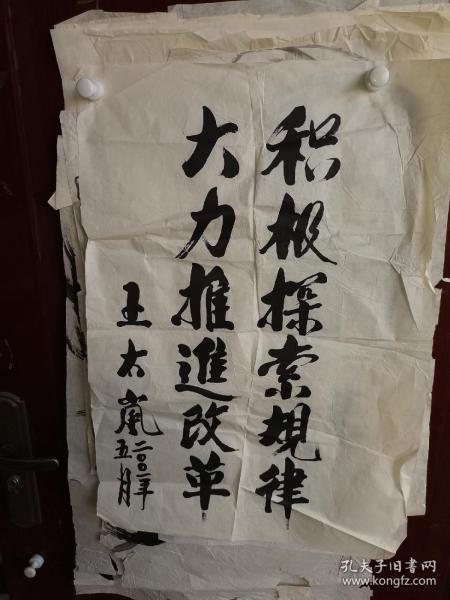 积极探索规律
大力推進改革
王太嵐
二〇〇三年
五月
孔夫子旧书网
www.kongfz.com